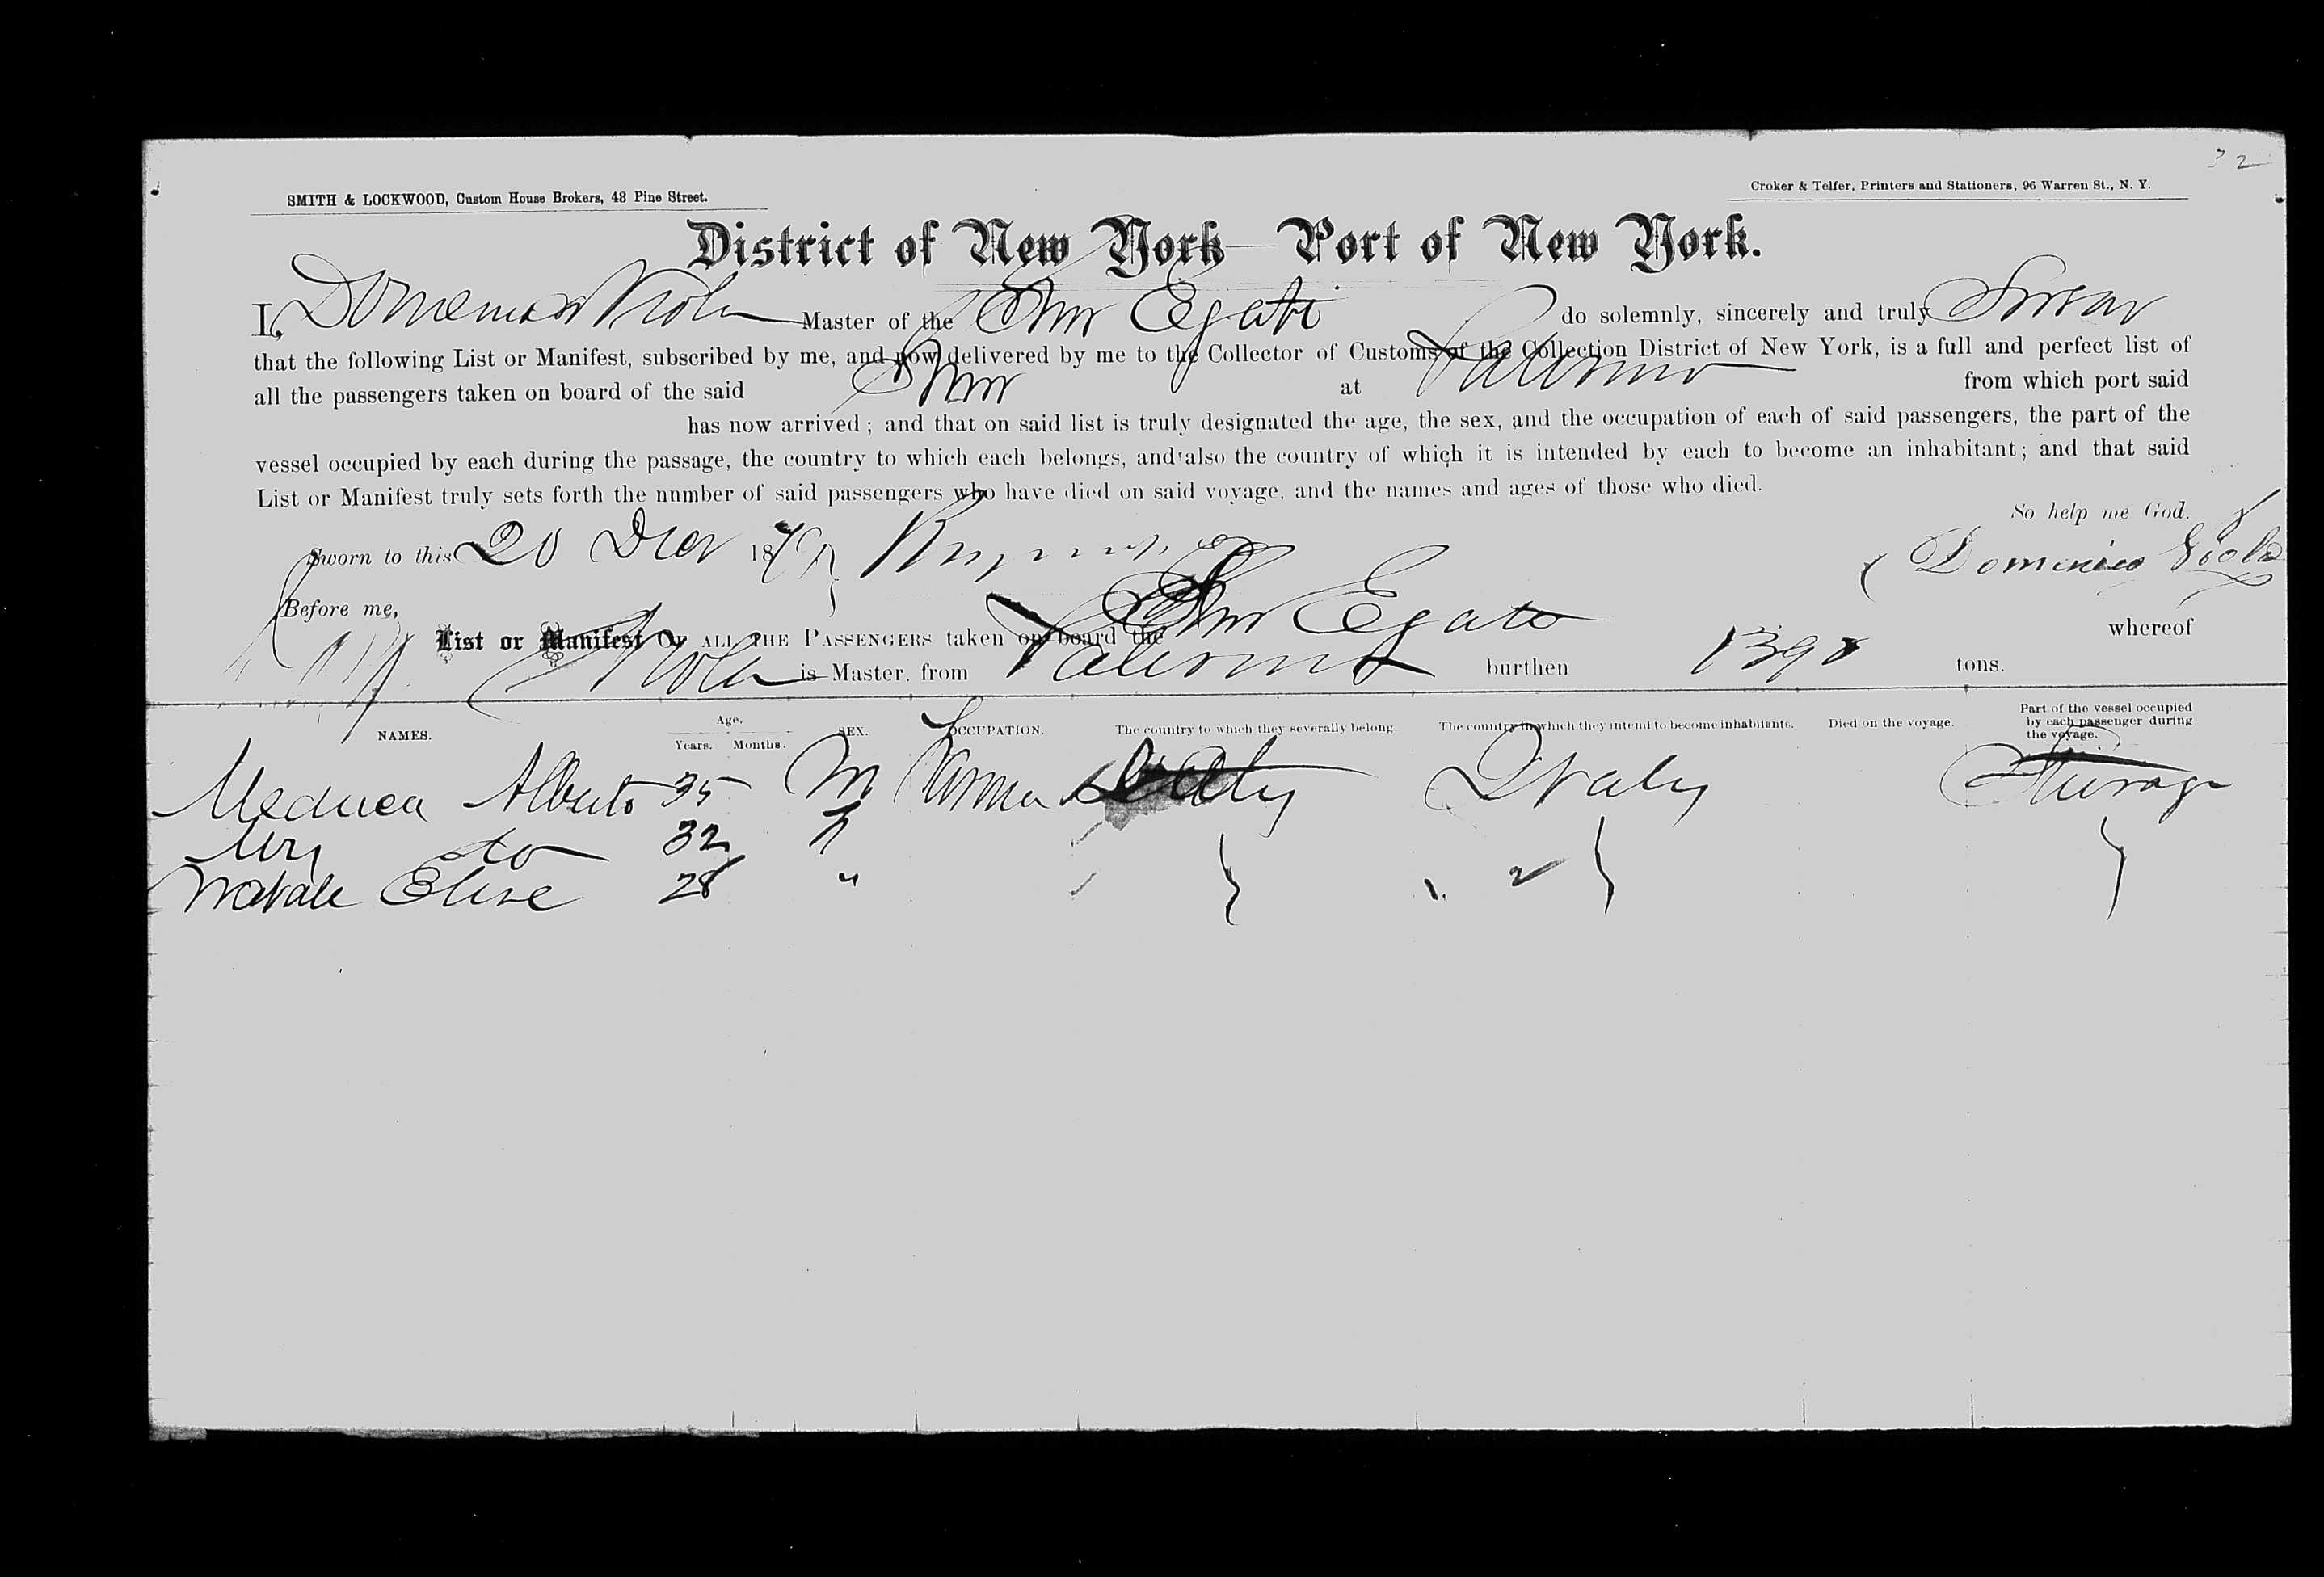 32
SMITH & LOCKWOOD, Custom House Brokers, 48 Pine Street.
Croker & Telfer, Printers and Stationers, 96 Warren St., N. Y.
District of New York—Port of New York.
I, Domenico Viola Master of the Egati do solemnly, sincerely and truly Swear
that the following List or Manifest, subscribed by me, and now delivered by me to the Collector of Customs of the Collection District of New York, is a full and perfect list of
all the passengers taken on board of the said at Palermo from which port said
has now arrived; and that on said list is truly designated the age, the sex, and the occupation of each of said passengers, the part of the
vessel occupied by each during the passage, the country to which each belongs, and also the country of which it is intended by each to become an inhabitant; and that said
List or Manifest truly sets forth the number of said passengers who have died on said voyage, and the names and ages of those who died.
So help me God.
Sworn to this 20 187
Domenico Viola
Before me,
List or Manifest OF ALL THE PASSENGERS taken on board the Egato whereof
Viola is Master, from Palermo burthen 1398 tons.
NAMES. Age. Years. Months. SEX. OCCUPATION. The country to which they severally belong. The country in which they intend to become inhabitants. Died on the voyage. Part of the vessel occupied by each passenger during the voyage.
Alberto 35 M Farmer Italy Italy Steerage
do 32
Elise 28 "